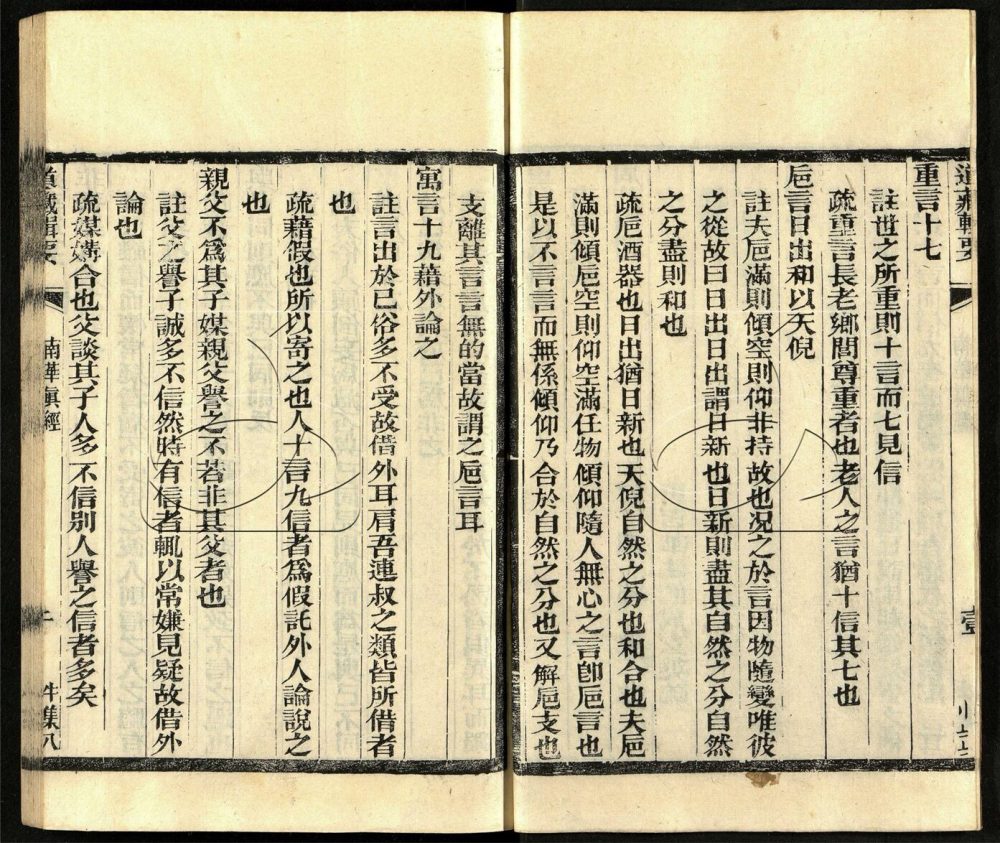 道藏輯要
重言十七
註世之所重則十言而七見信
疏重言長老鄉閭尊重者也老人之言猶十信其七也
巵言日出和以天倪
註夫巵滿則傾空則仰非持故也况之於言因物隨變唯彼
之從故曰日出日出謂日新也日新則盡其自然之分自然
之分盡則和也
疏巵酒器也日出猶日新也天倪自然之分也和合也夫巵
滿則傾巵空則仰空滿任物傾仰隨人無心之言卽巵言也
是以不言言而無係傾仰乃合於自然之分也又解巵支也
支離其言言無的當故謂之巵言耳
寓言十九藉外論之
註言出於己俗多不受故借外耳肩吾連叔之類皆所借者
也
疏藉假也所以寄之也人十言九信者爲假託外人論說之
也
親父不爲其子媒親父譽之不若非其父者也
註父之譽子誠多不信然時有信者輒以常嫌見疑故借外
論也
疏媒媾合也父談其子人多不信別人譽之信者多矣
道藏輯要 南華眞經 牛集八